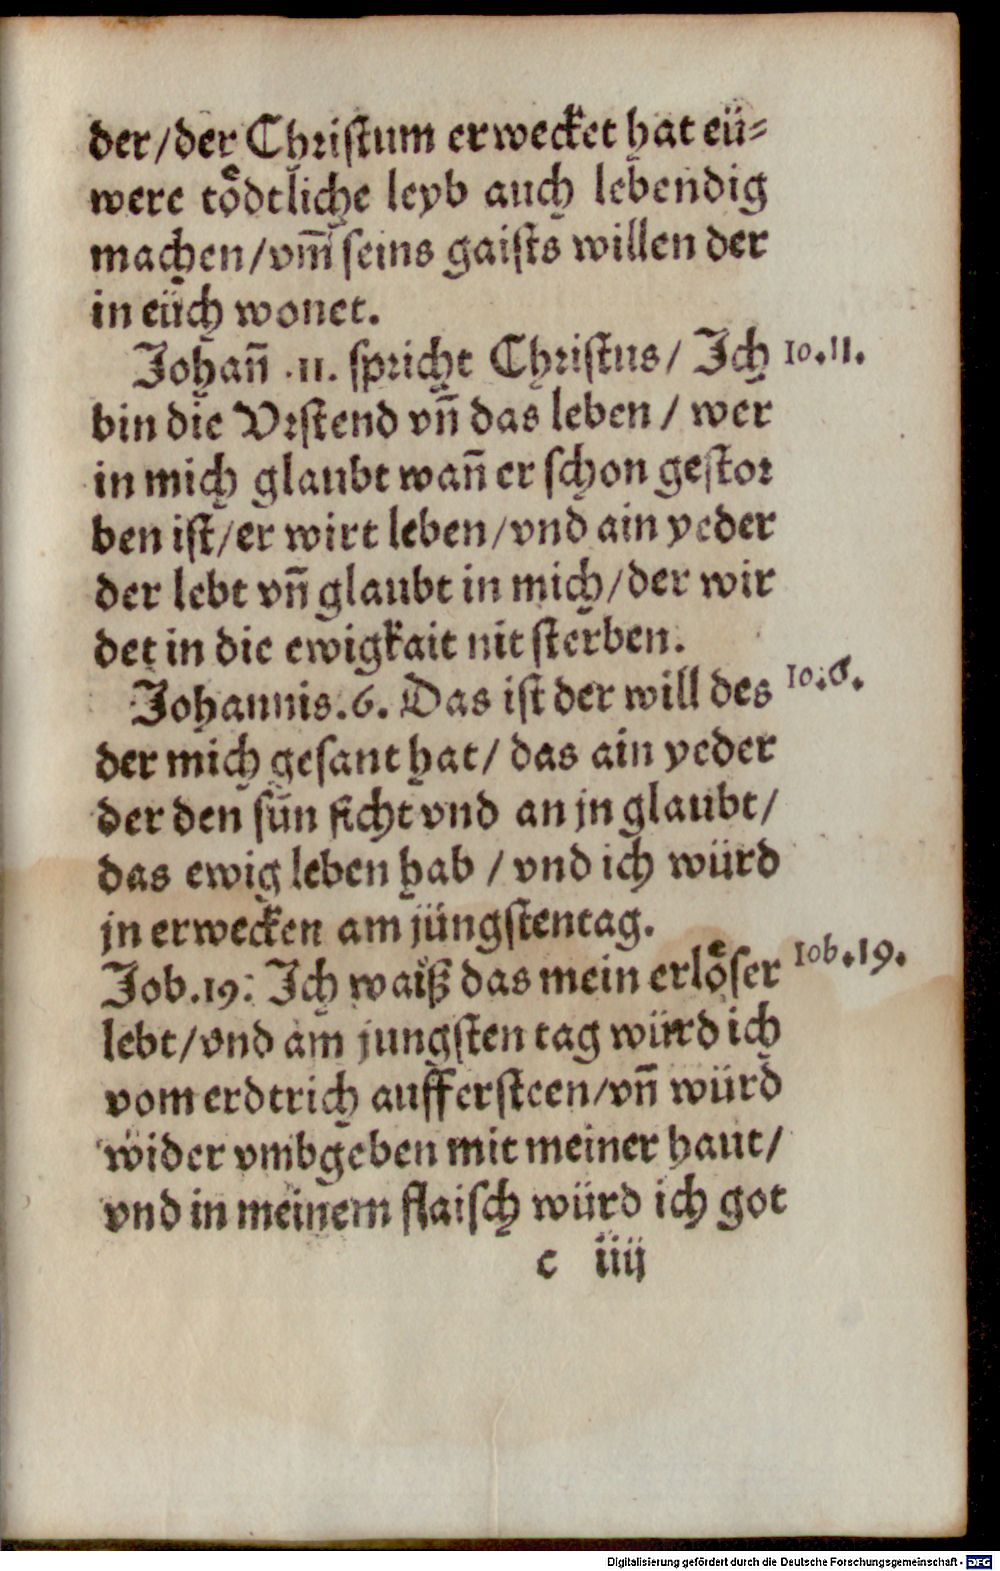 der/der Christum erwecket hat eü-
were toͤdtliche leyb auch lebendig
machen/vm̃ seins gaists willen der
in eüch wonet.
Johañ .11. spricht Christus/ Ich
Io.11.
bin die Vrstend vñ das leben / wer
in mich glaubt wañ er schon gestor
ben ist/er wirt leben/vnd ain yeder
der lebt vñ glaubt in mich/der wir
det in die ewigkait nit sterben.
Johannis.6. Das ist der will des
Io.6.
der mich gesant hat/ das ain yeder
der den sün sicht vnd an jn glaubt/
das ewig leben hab / vnd ich würd
jn erwecken am jüngstentag.
Job.19: Ich waiß das mein erloͤser
Iob.19.
lebt/vnd am jungsten tag würd ich
vom erdtrich auffersteen/vñ würd
wider vmbgeben mit meiner haut/
vnd in meinem flaisch würd ich got
c iiij
Digitalisierung gefördert durch die Deutsche Forschungsgemeinschaft - DFG